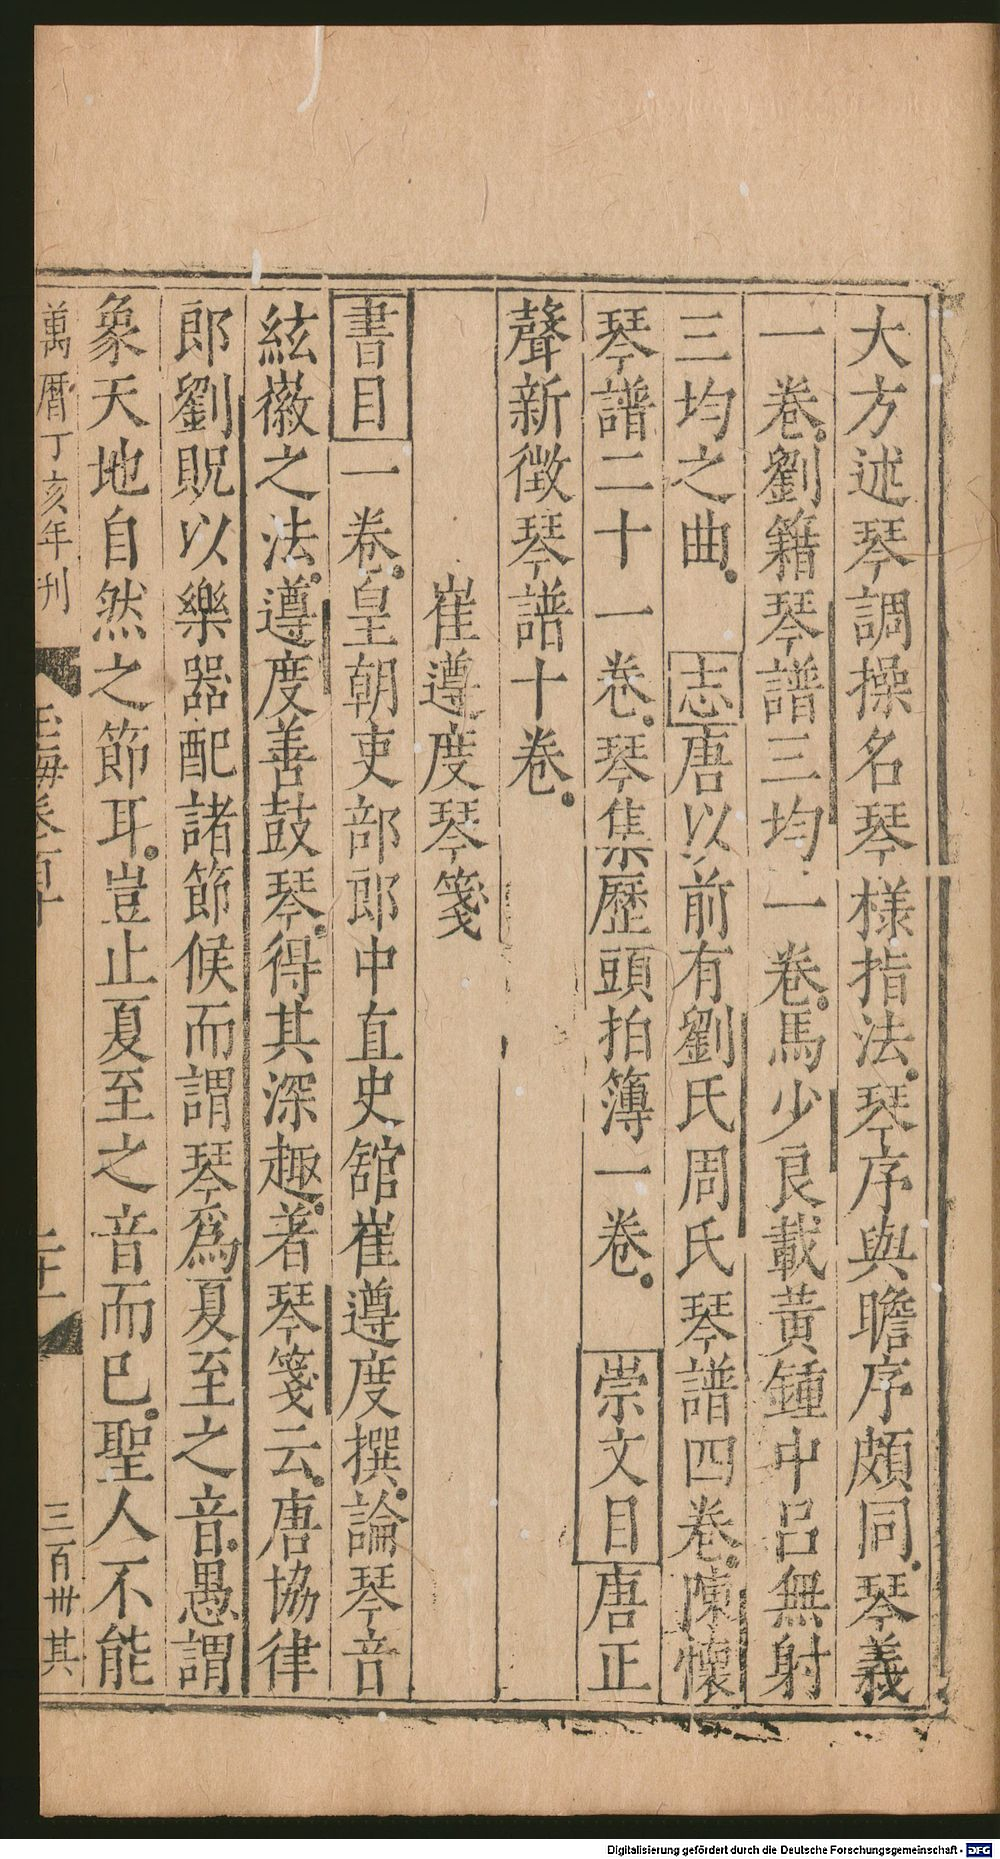 大方述琴調操名琴樣指法琴序與瞻序頗同琴義
一卷劉籍琴譜三均一卷馬少良載黃鍾中呂無射
三均之曲　志唐以前有劉氏周氏琴譜四卷陳懷
琴譜二十一卷琴集歷頭拍簿一卷　崇文目唐正
聲新徵琴譜十卷
崔遵度琴箋
書目一卷皇朝吏部郎中直史館崔遵度撰論琴音
絃徽之法遵度善鼓琴得其深趣著琴箋云唐協律
郎劉貺以樂器配諸節候而謂琴爲夏至之音愚謂
象天地自然之節耳豈止夏至之音而已聖人不能
萬曆丁亥年刊　玉海卷百十　二十一　三百卅其
Digitalisierung gefördert durch die Deutsche Forschungsgemeinschaft - DFG